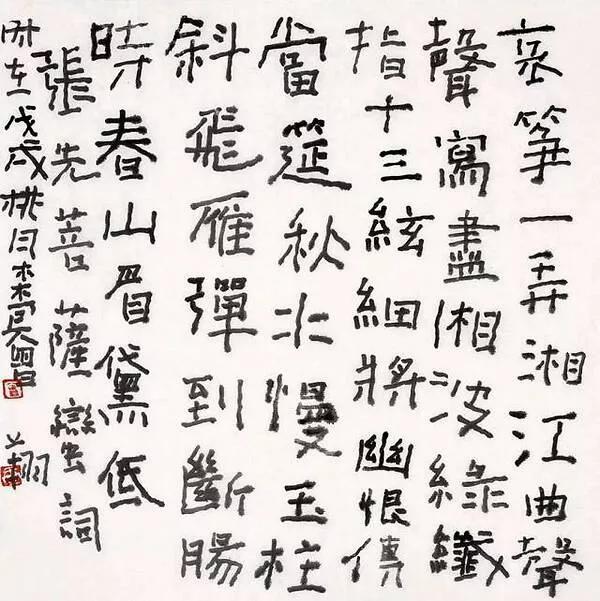 哀箏一弄湘江曲聲
聲寫盡湘波綠纖
指十三絃細將幽恨傳
當筵秋水慢玉柱
斜飛雁彈到斷腸
時春山眉黛低
張先菩薩蠻詞
时在戊戌桃月